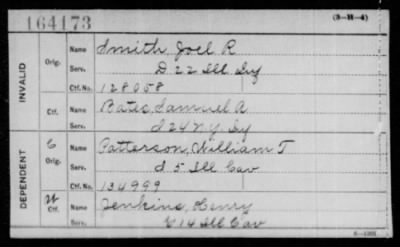 164173 (3-H-4)
INVALID
Orig. Name Smith, Joel R
Serv. D 22 Ill Inf
Ctf. No. 128058
Ctf. Name Bates, Samuel A
Serv. I 24 N.Y. Inf
DEPENDENT
C Orig. Name Patterson, William T
Serv. I 5 Ill Cav
Ctf. No. 134999
W Ctf. Name Jenkins, Henry
Serv. C 14 Ill Cav